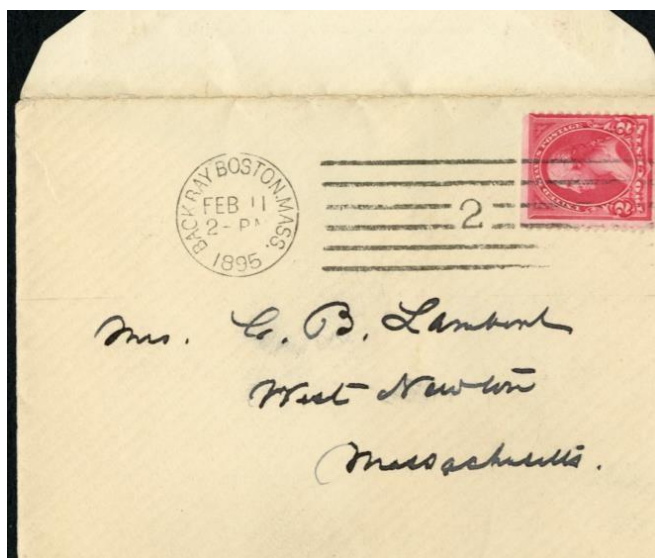 BACK BAY BOSTON, MASS.
FEB 11
2- P
1895
2
Mrs. C. B. Lambert
West Newton
Massachusetts.